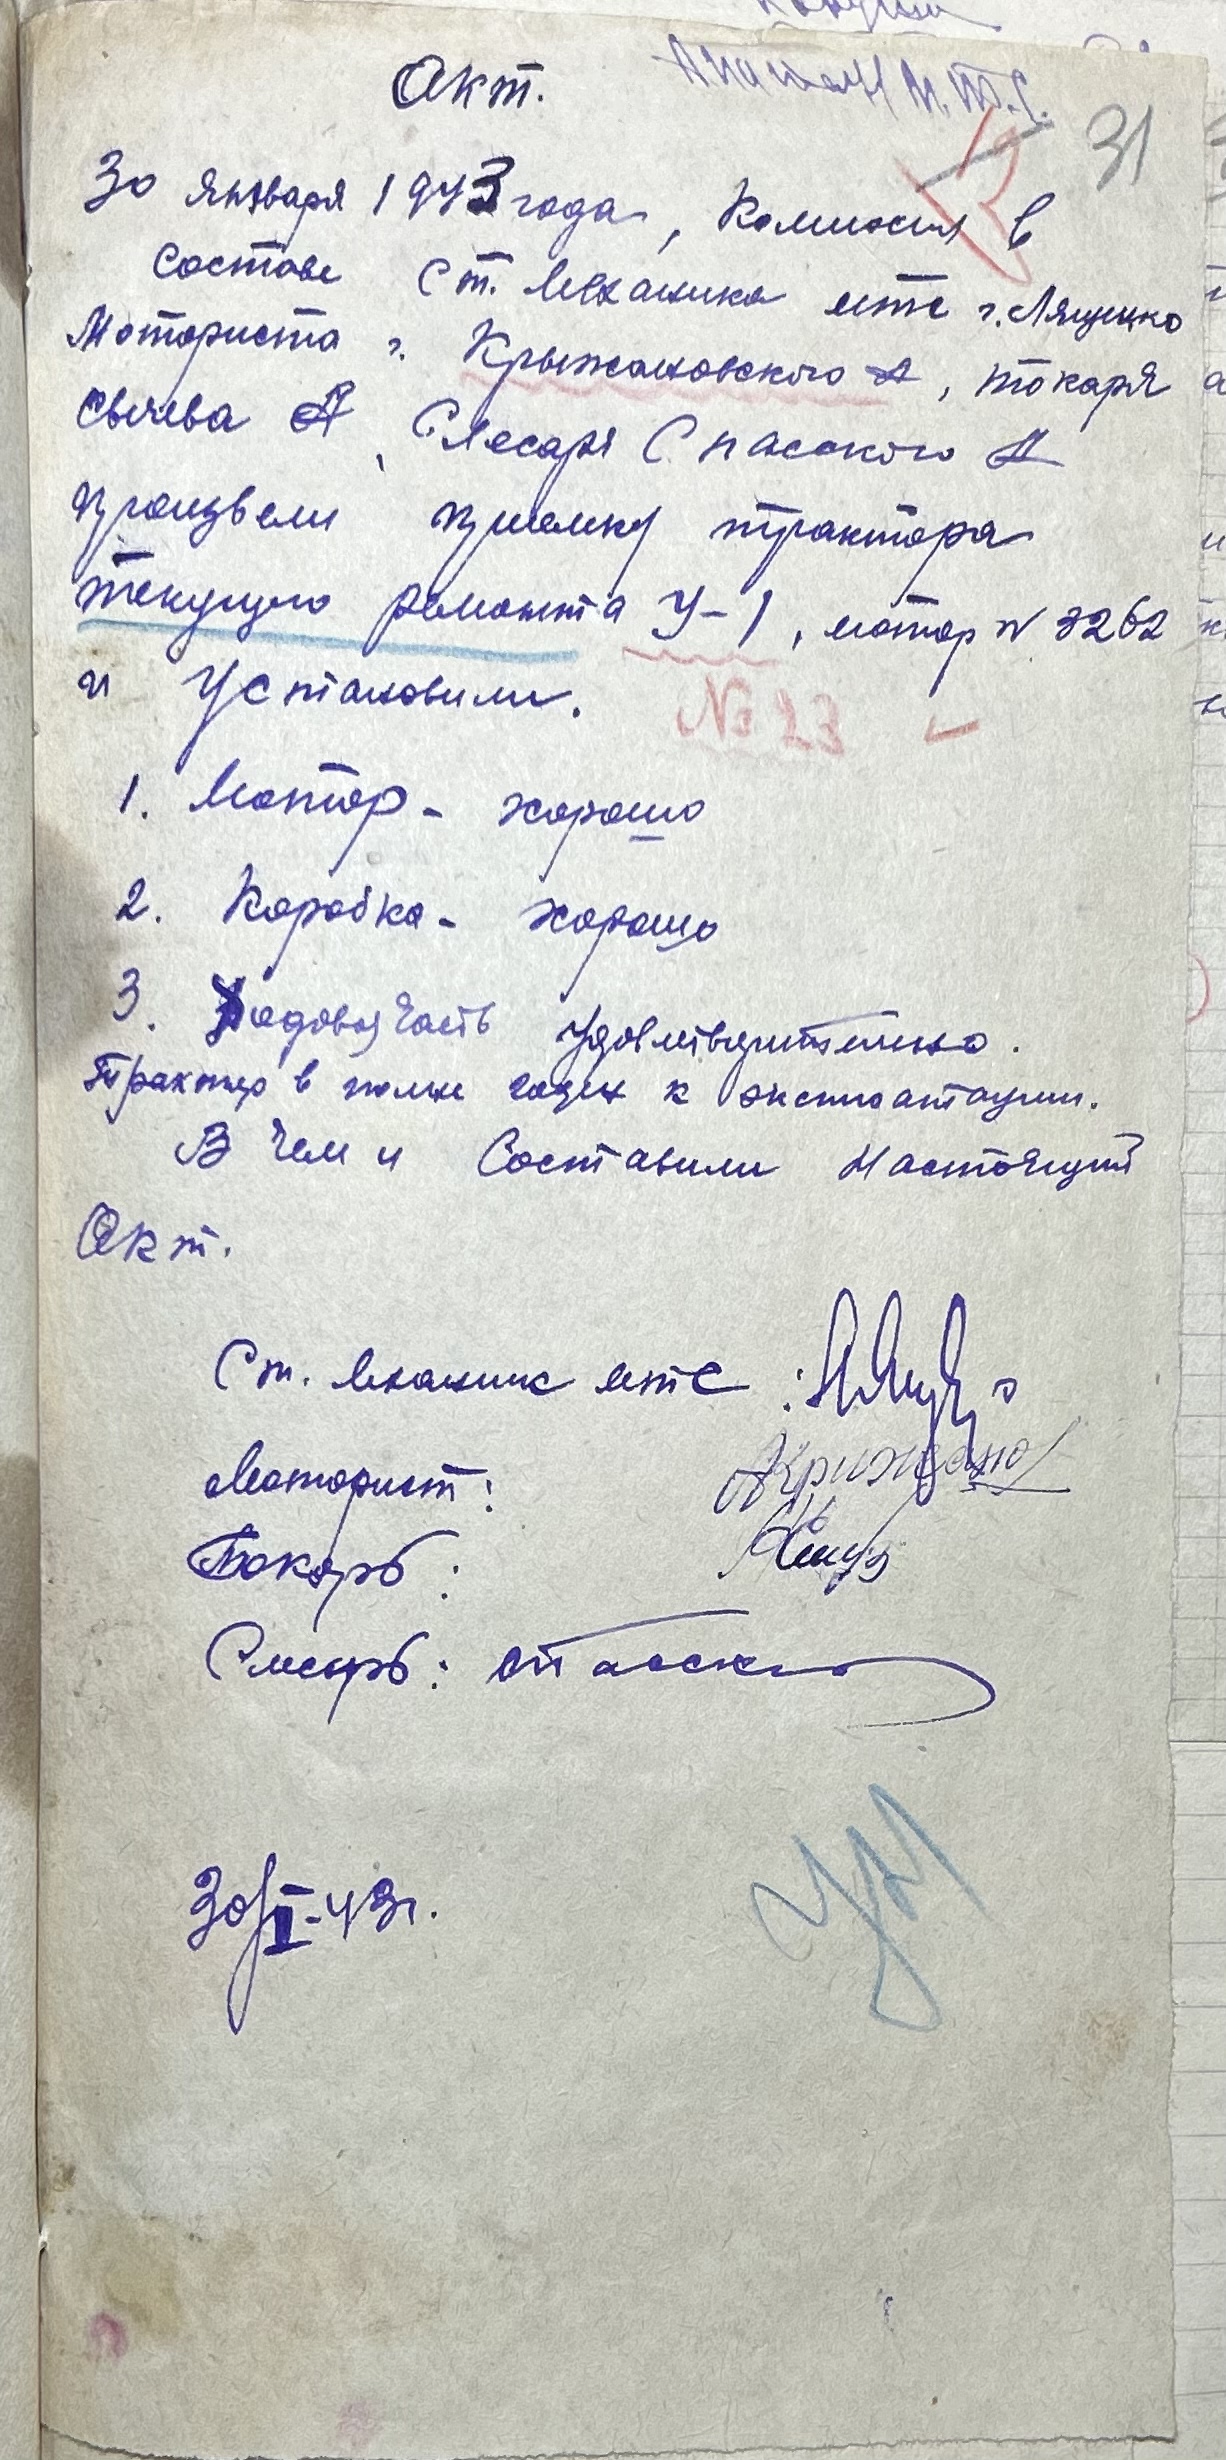 Акт.
М.Т.С.
31
30 января 1943 года, Комиссия в
составе Ст. Механика мтс т. Лящецко
Моториста т. Крыжановского А, токаря
Сычева А, Слесаря Спасского А
произвели приемку трактора
текущего ремонта У-1, мотор N 3262
и Установили.
№ 23
1. Мотор - хорошо
2. Коробка - хорошо
3. Ходовая часть удовлетварительно.
Трактор в полне годен к эксплоатации.
В чем и Составили Настоящий
Акт.
Ст. механик мтс :
Моторист: Крижано
Токарь:
Слесарь: Спасски
30/I-43г.